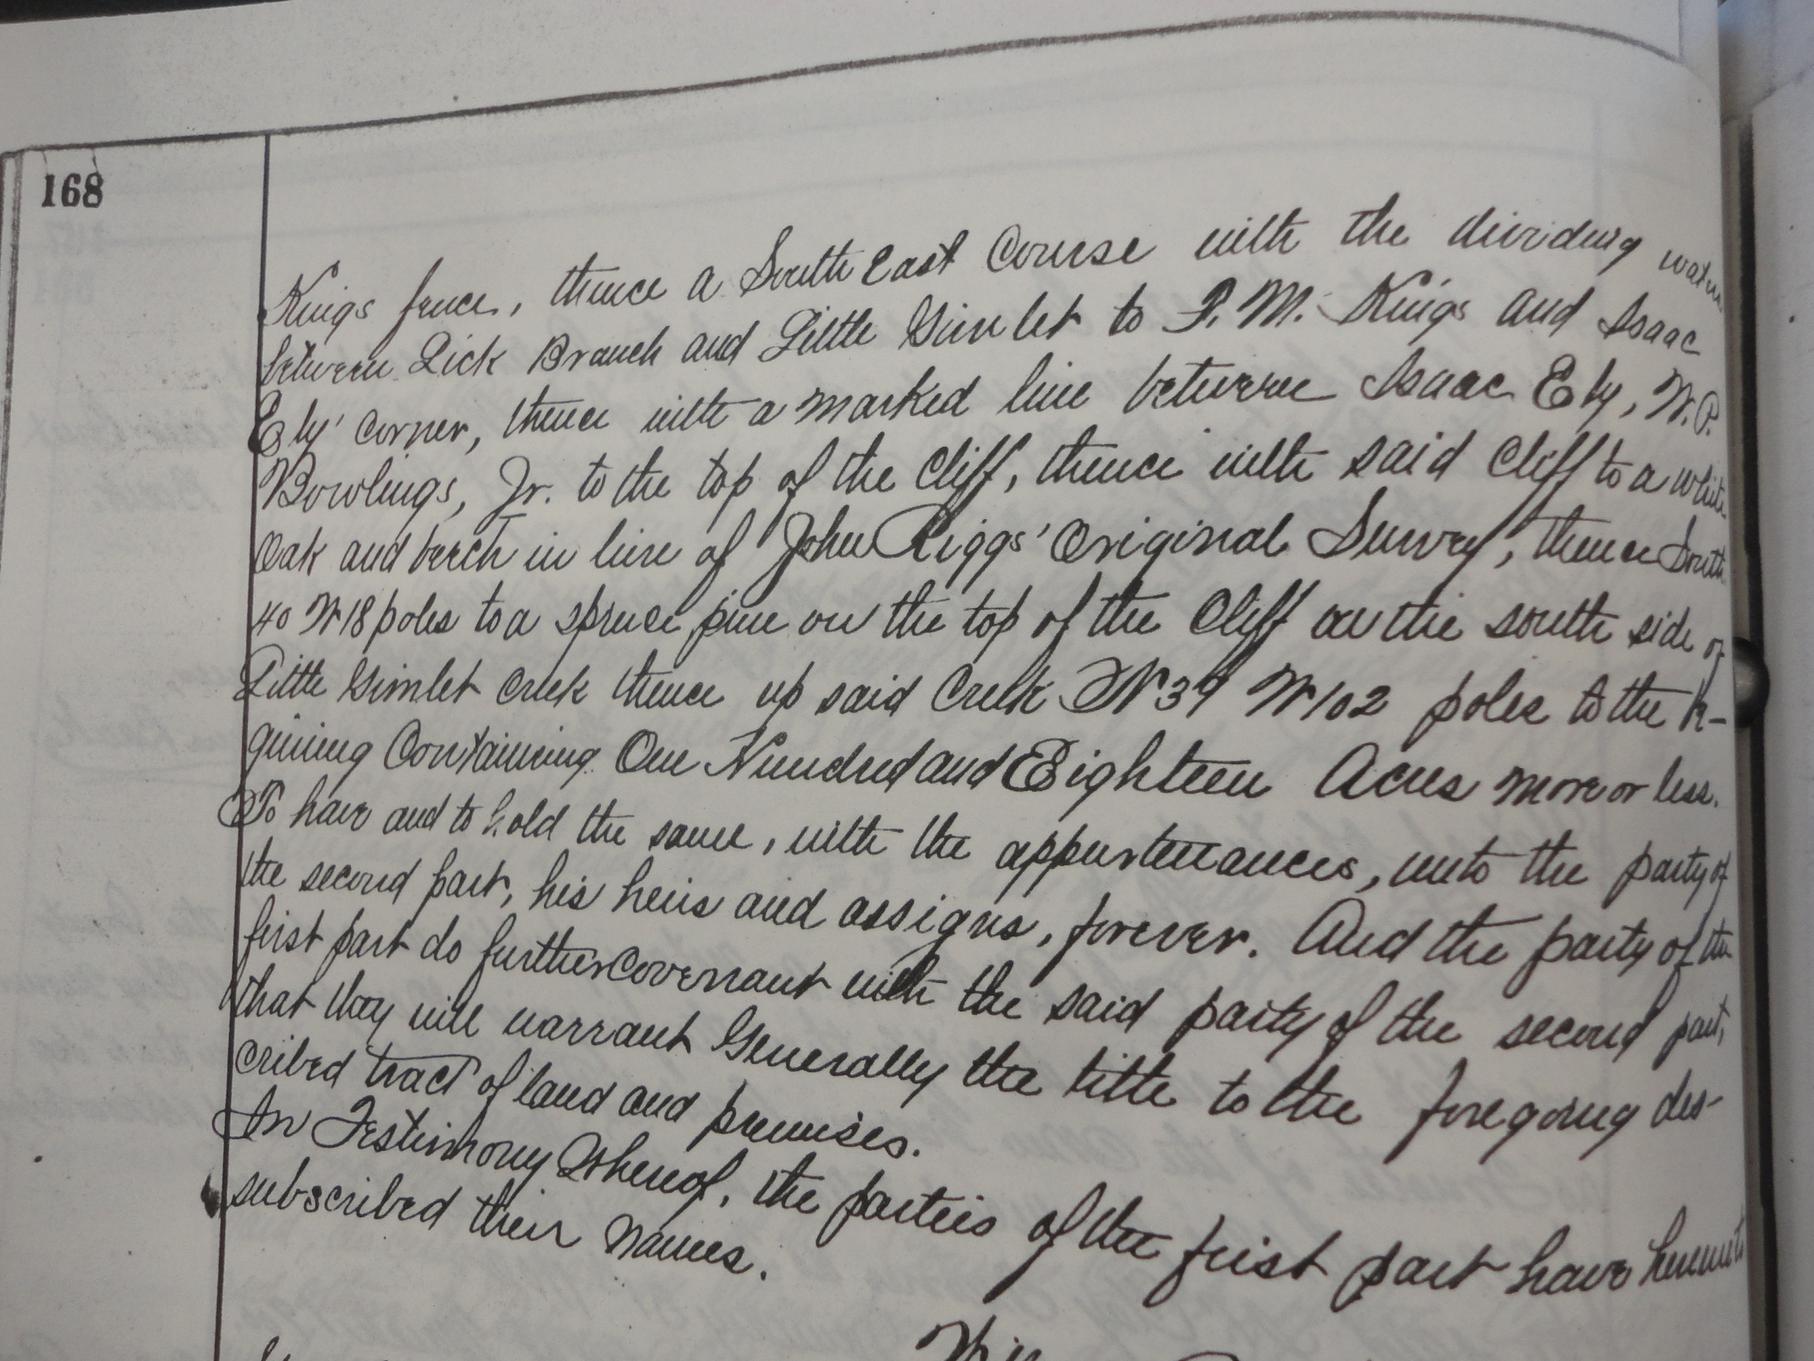 168
Kings fence, thence a South East Course with the dividing water
between Lick Branch and Little Gimlet to P. M. Kings and Isaac
Ely' corner, thence with a marked line between Isaac Ely, W. P.
Bowlings, Jr. to the top of the Cliff, thence with said Cliff to a white
Oak and beech in line of John Riggs' Original Survey, thence South
40 W 18 poles to a spruce pine on the top of the Cliff on the south side of
Little Gimlet Creek thence up said Creek N 39 W 102 poles to the be-
gining Containing One Hundred and Eighteen Acres more or less.
To have and to hold the same, with the appurtenances, unto the party of
the second part, his heirs and assigns, forever. And the party of the
first part do further covenant with the said party of the second part,
that they will warrant Generally the title to the foregoing des-
cribed tract of land and premises.
In Testimony Whereof, the parties of the first part have hereunto
subscribed their names.